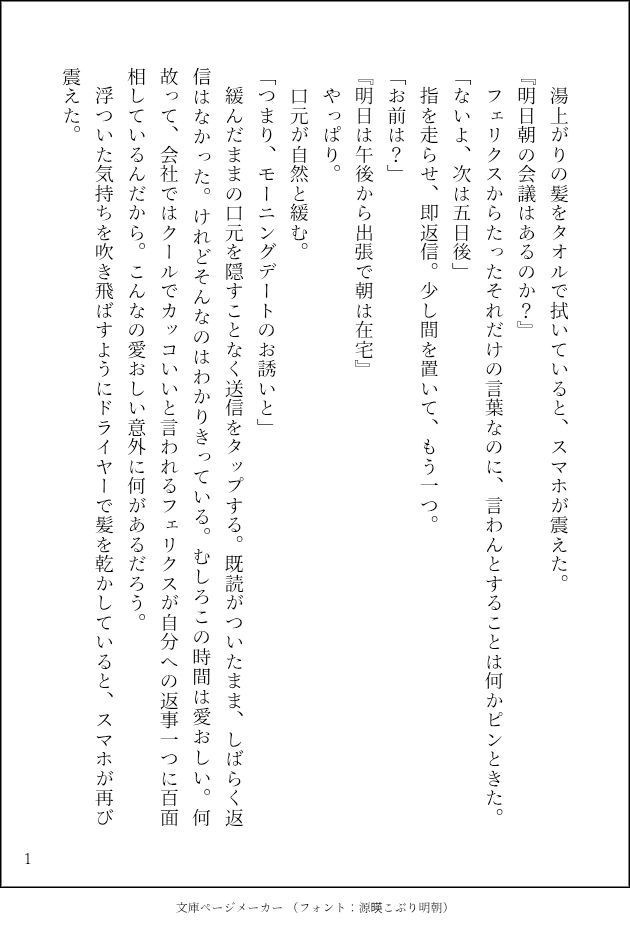 湯上がりの髪をタオルで拭いていると、スマホが震えた。
『明日朝の会議はあるのか？』
フェリクスからたったそれだけの言葉なのに、言わんとすることは何かピンときた。
「ないよ、次は五日後」
指を走らせ、即返信。少し間を置いて、もう一つ。
「お前は？」
『明日は午後から出張で朝は在宅』
やっぱり。
口元が自然と緩む。
「つまり、モーニングデートのお誘いと」
緩んだままの口元を隠すことなく送信をタップする。既読がついたまま、しばらく返
信はなかった。けれどそんなのはわかりきっている。むしろこの時間は愛おしい。何
故って、会社ではクールでカッコいいと言われるフェリクスが自分への返事一つに百面
相しているんだから。こんなの愛おしい意外に何があるだろう。
浮ついた気持ちを吹き飛ばすようにドライヤーで髪を乾かしていると、スマホが再び
震えた。
1
文庫ページメーカー（フォント：源暎こぶり明朝）